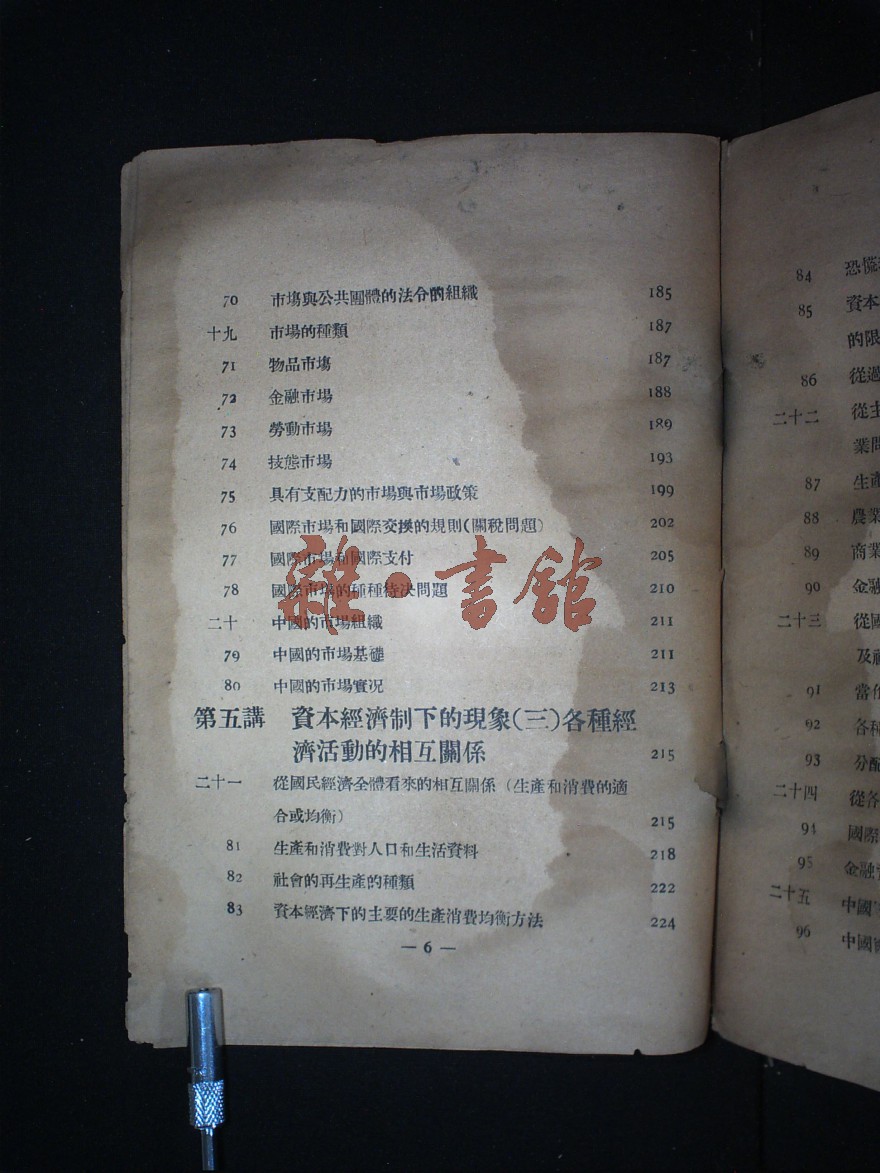 70 市場與公共團體的法令的組織 185
十九 市場的種類 187
71 物品市場 187
72 金融市場 188
73 勞動市場 189
74 技態市場 193
75 具有支配力的市場與市場政策 199
76 國際市場和國際交換的規則(關稅問題) 202
77 國際市場和國際支付 205
78 國際市場的種種特決問題 210
二十 中國的市場組織 211
79 中國的市場基礎 211
80 中國的市場實況 213
第五講 資本經濟制下的現象(三)各種經
濟活動的相互關係 215
二十一 從國民經濟全體看來的相互關係(生產和消費的適
合或均衡) 215
81 生產和消費對人口和生活資料 218
82 社會的再生產的種類 222
83 資本經濟下的主要的生產消費均衡方法 224
— 6 —
雜·書館
84 恐慌
85 資本
的限
86 從過
二十二 從主
業問
87 生產
88 農業
89 商業
90 金融
二十三 從國
及
91 當作
92 各種
93 分配
二十四 從各
94 國際
95 金融
二十五 中國
96 中國